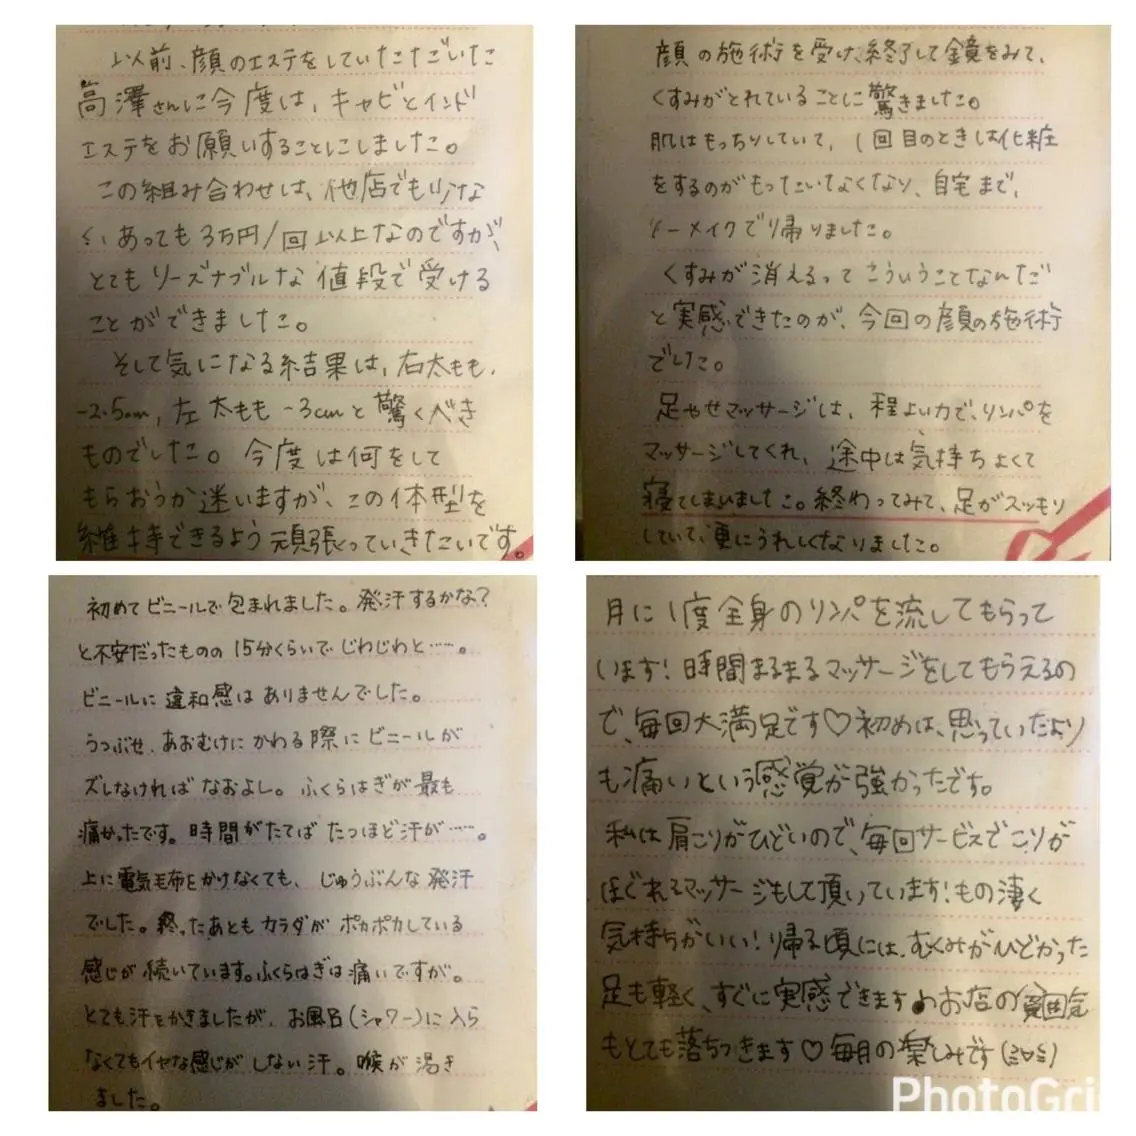 以前、顔のエステをしていただいた
高澤さんに今度は、キャビとインド
エステをお願いすることにしました。
この組み合わせは、他店でも少な
く、あっても3万円/回以上なのですが、
とてもリーズナブルな値段で受ける
ことができました。
そして気になる結果は、右太もも、
-2.5cm, 左太もも -3cmと驚くべき
ものでした。今度は何をして
もらおうか迷いますが、この体型を
維持できるよう頑張っていきたいです。
顔の施術を受け、終了して鏡をみて、
くすみがとれていることに驚きました。
肌はもっちりしていて、1回目のときは化粧
をするのがもったいなくなり、自宅まで、
ノーメイクで帰りました。
くすみが消えるってこういうことなんだ
と実感できたのが、今回の顔の施術
でした。
足やせマッサージは、程よい力で、リンパを
マッサージしてくれ、途中は気持ちよくて
寝てしまいました。終わってみて、足がスッキリ
していて、更にうれしくなりました。
初めてビニールで包まれました。発汗するかな?
と不安だったものの15分くらいでじわじわと……。
ビニールに違和感はありませんでした。
うつぶせ、あおむけにかわる際にビニールが
ズレなければなおよし。ふくらはぎが最も
痛かったです。時間がたてばたつほど汗が……。
上に電気毛布をかけなくても、じゅうぶんな発汗
でした。終ったあともカラダがポカポカしている
感じが続いています。ふくらはぎは痛いですが。
とても汗をかきましたが、お風呂(シャワー)に入ら
なくてもイヤな感じがしない汗。喉が渇き
ました。
月に1度全身のリンパを流してもらって
います!時間まるまるマッサージをしてもらえるの
で、毎回大満足です♡初めは、思っていたより
も痛いという感覚が強かったです。
私は肩こりがひどいので、毎回サービスでこりが
ほぐれるマッサージもして頂いています!もの凄く
気持ちがいい!帰る頃には、むくみがひどかった
足も軽く、すぐに実感できます♪お店の雰囲気
もとても落ちつきます♡毎月の楽しみです(≧∀≦)
PhotoGri